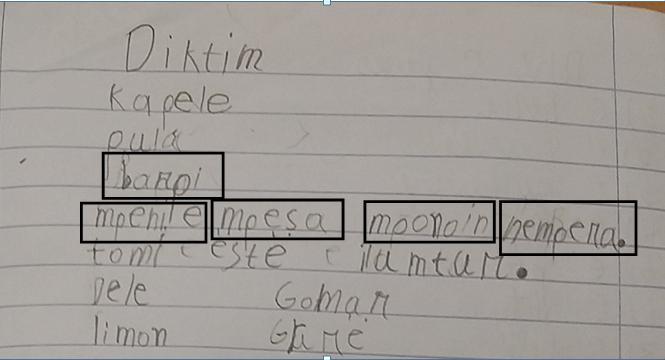 Diktim
kapele
pula
barpi
mpehile mpesa mponoin nempena.
tomi este iumtur.
pele Gomar
limon Grire